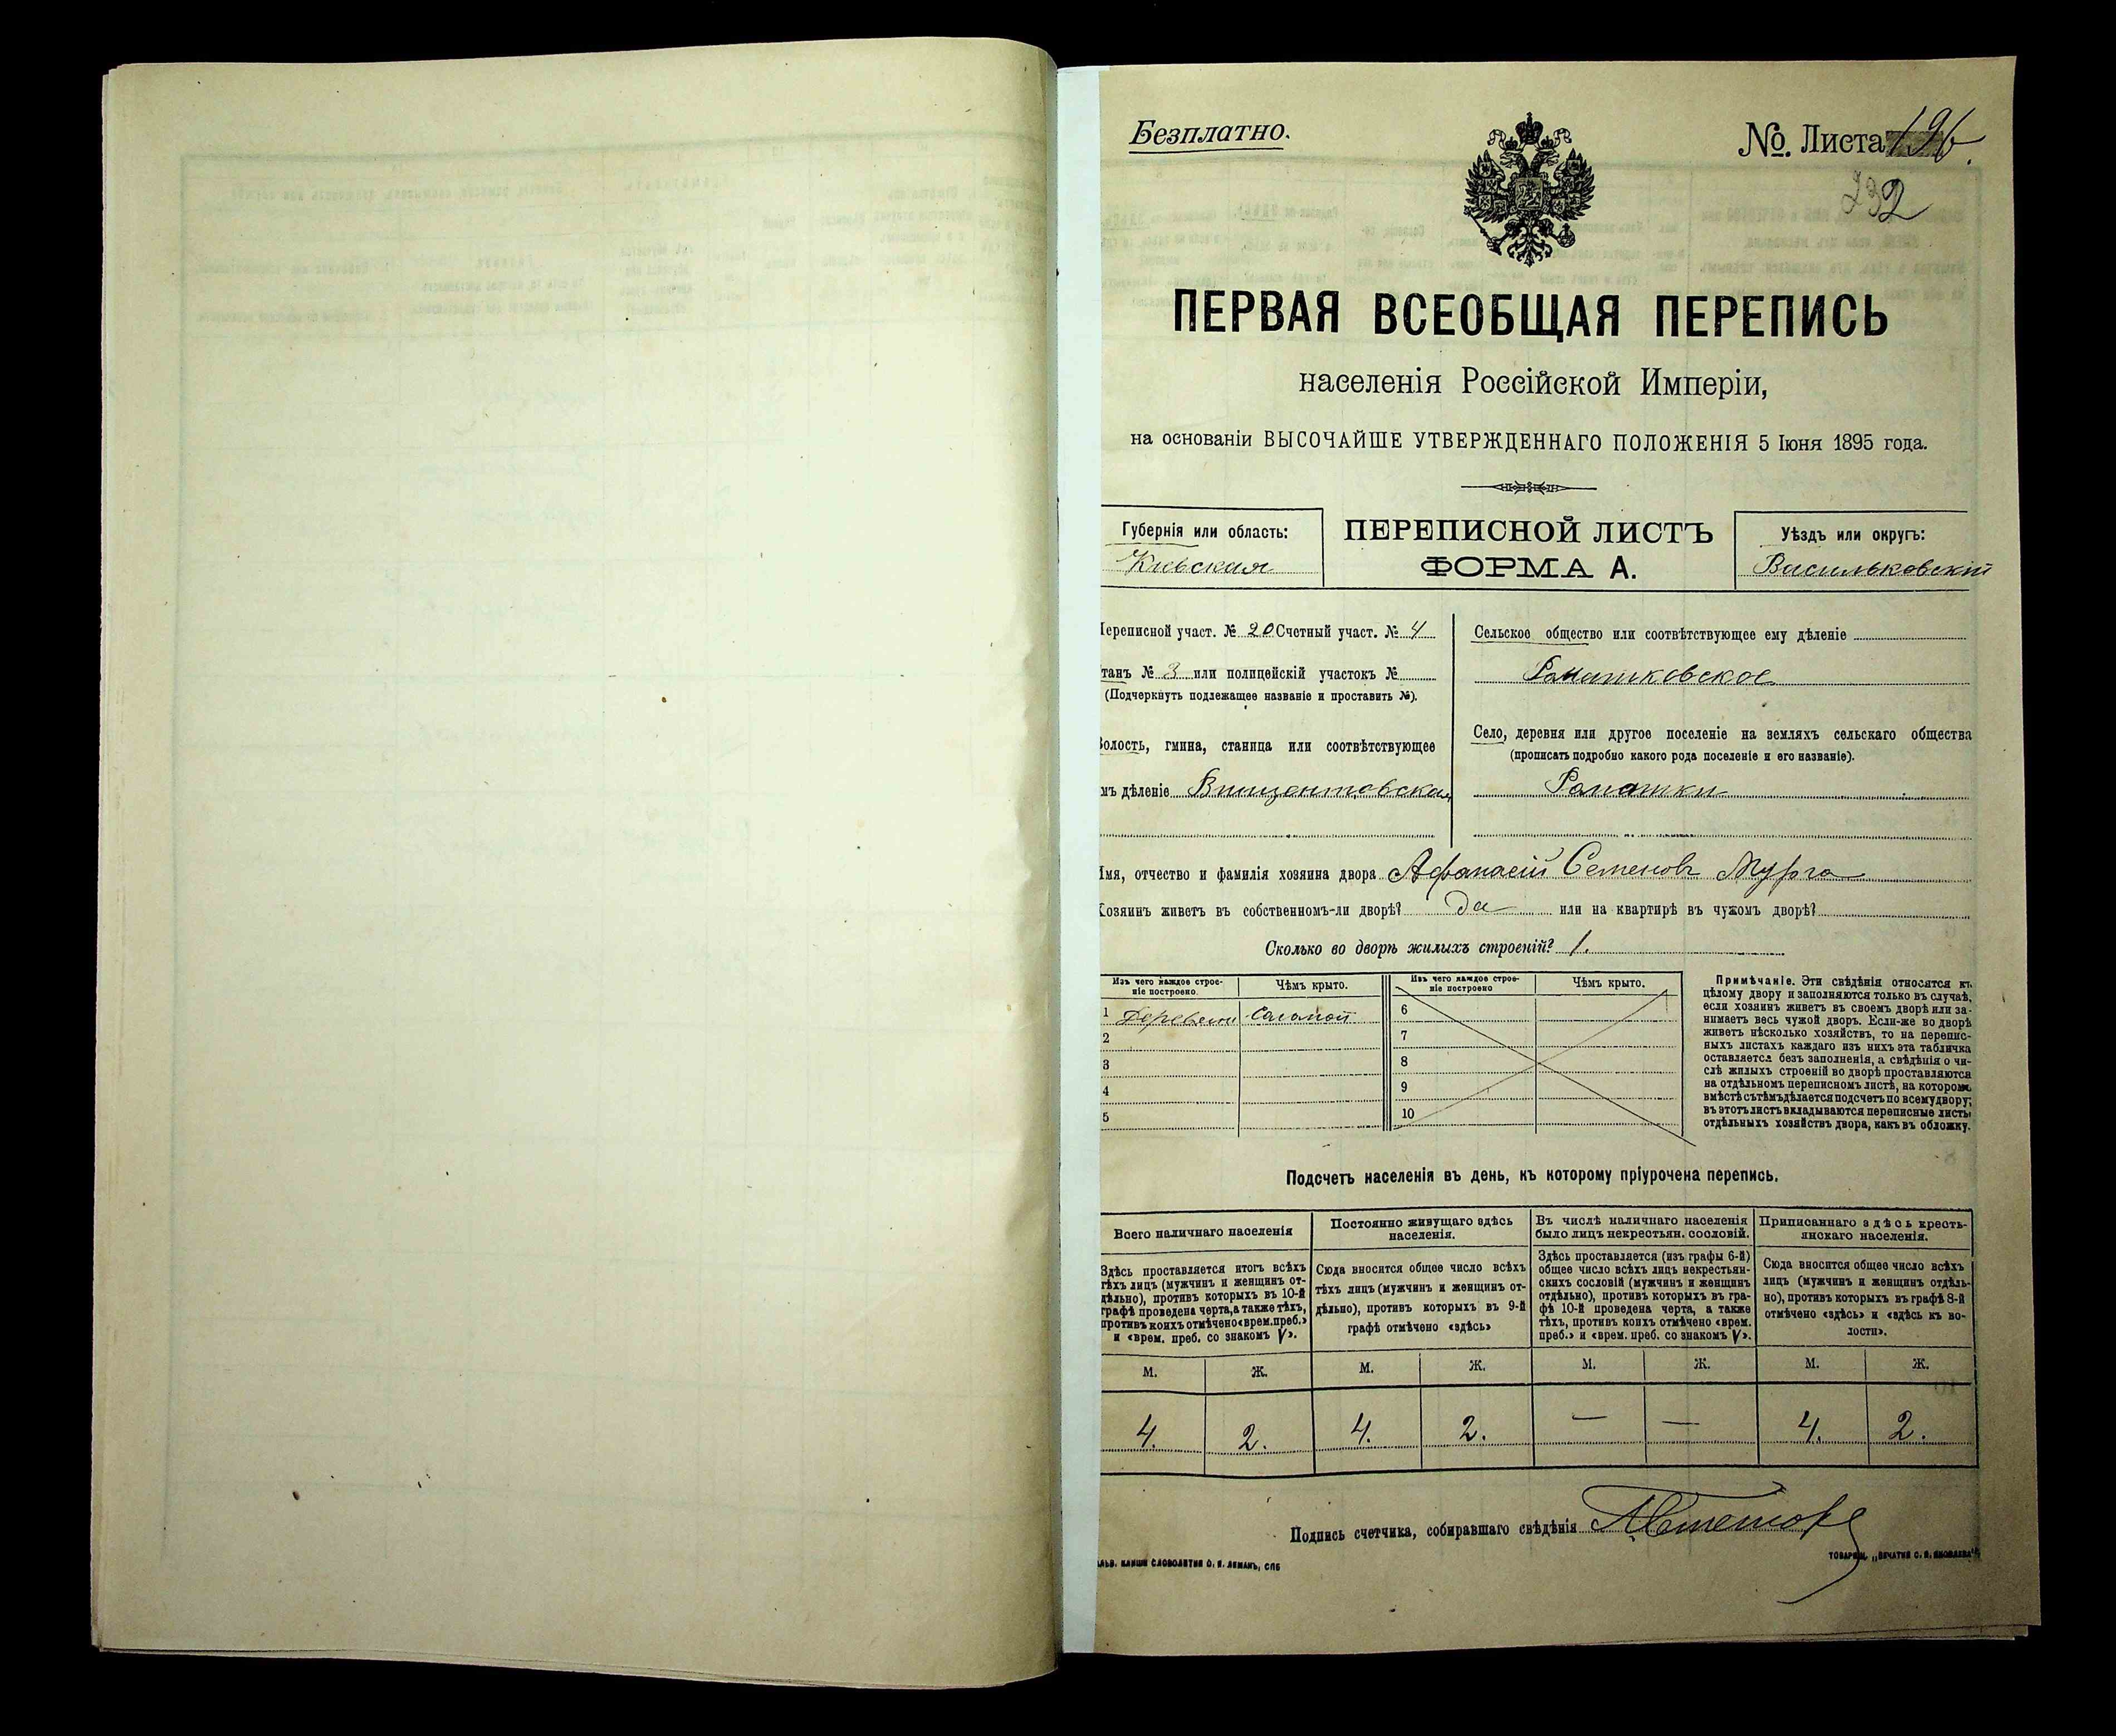 Безплатно.
№. Листа 196.
232
ПЕРВАЯ ВСЕОБЩАЯ ПЕРЕПИСЬ
населенія Россійской Имперіи,
на основаніи ВЫСОЧАЙШЕ УТВЕРЖДЕННАГО ПОЛОЖЕНІЯ 5 Іюня 1895 года.
Губернія или область:
Кіевская
ПЕРЕПИСНОЙ ЛИСТЪ
ФОРМА А.
Уѣздъ или округъ:
Васильковскій
Переписной участ. № 20 Счетный участ. № 4
танъ № 3 или полицейскій участокъ №
(Подчеркнуть подлежащее названіе и проставить №).
Волость, гмина, станица или соотвѣтствующее
мъ дѣленіе Винцентовская
Сельское общество или соотвѣтствующее ему дѣленіе
Ромашковское
Село, деревня или другое поселеніе на земляхъ сельскаго общества
(прописать подробно какого рода поселеніе и его названіе).
Ромашки
Имя, отчество и фамилія хозяина двора Афанасій Семеновъ Мурга
Хозяинъ живетъ въ собственномъ-ли дворѣ? да или на квартирѣ въ чужомъ дворѣ?
Сколько во дворѣ жилыхъ строеній? 1.
Изъ чего каждое строе-
ніе построено.
Чѣмъ крыто.
Изъ чего каждое строе-
ніе построено
Чѣмъ крыто.
1 Деревяни Соломой
2
3
4
5
6
7
8
9
10
Примѣчаніе. Эти свѣдѣнія относятся къ
цѣлому двору и заполняются только въ случаѣ,
если хозяинъ живетъ въ своемъ дворѣ или за-
нимаетъ весь чужой дворъ. Если-же во дворѣ
живетъ нѣсколько хозяйствъ, то на перепис-
ныхъ листахъ каждаго изъ нихъ эта табличка
оставляется безъ заполненія, а свѣдѣнія о чи-
слѣ жилыхъ строеній во дворѣ проставляются
на отдѣльномъ переписномъ листѣ, на которомъ
вмѣстѣ съ тѣмъ дѣлается подсчетъ по всему двору;
въ этотъ листъ вкладываются переписные листы
отдѣльныхъ хозяйствъ двора, какъ въ обложку.
Подсчетъ населенія въ день, къ которому пріурочена перепись.
Всего наличнаго населенія
Здѣсь проставляется итогъ всѣхъ
тѣхъ лицъ (мужчинъ и женщинъ от-
дѣльно), противъ которыхъ въ 10-й
графѣ проведена черта, а также тѣхъ,
противъ коихъ отмѣчено «врем. преб.»
и «врем. преб. со знакомъ V».
Постоянно живущаго здѣсь
населенія.
Сюда вносится общее число всѣхъ
тѣхъ лицъ (мужчинъ и женщинъ от-
дѣльно), противъ которыхъ въ 9-й
графѣ отмѣчено «здѣсь»
Въ числѣ наличнаго населенія
было лицъ некрестьян. сословій.
Здѣсь проставляется (изъ графы 6-й)
общее число всѣхъ лицъ некрестьян-
скихъ сословій (мужчинъ и женщинъ
отдѣльно), противъ которыхъ въ гра-
фѣ 10-й проведена черта, а также
тѣхъ, противъ коихъ отмѣчено «врем.
преб.» и «врем. преб. со знакомъ V».
Приписаннаго здѣсь кресть-
янскаго населенія.
Сюда вносится общее число всѣхъ
лицъ (мужчинъ и женщинъ отдѣль-
но), противъ которыхъ въ графѣ 8-й
отмѣчено «здѣсь» и «здѣсь къ во-
лости».
М. Ж. М. Ж. М. Ж. М. Ж.
4. 2. 4. 2. — — 4. 2.
Подпись счетчика, собиравшаго свѣдѣнія
КЛИШИ СЛОВОЛИТНИ О. И. ЛЕМАНЪ, СПБ
ТОВАРИЩ. „ПЕЧАТНЯ С. П. ЯКОВЛЕВА“